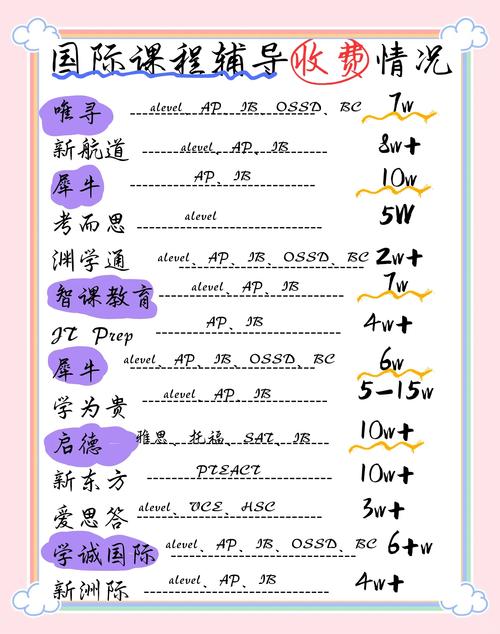 国际课程辅导收费情况
唯寻 alevel、AP、IB、OSSD、BC 7w
新航道 alevel、AP、IB 8w+
犀牛 AP、IB 10w
考而思 alevel 5W
渊学通 alevel、AP、IB、OSSD、BC 2w+
智课教育 alevel、AP、IB 7w
JT Prep AP、IB 4w+
犀牛 alevel、AP、IB、OSSD、BC 6w
学为贵 alevel、AP、IB 5-15w
启德 雅思、托福、SAT、IB 10w+
新东方 PTEACT 10w+
爱思答 alevel、VCE、HSC 3w+
学诚国际 alevel、AP、IB、OSSD、BC 6+w
新洲际 alevel、AP、IB 4w+